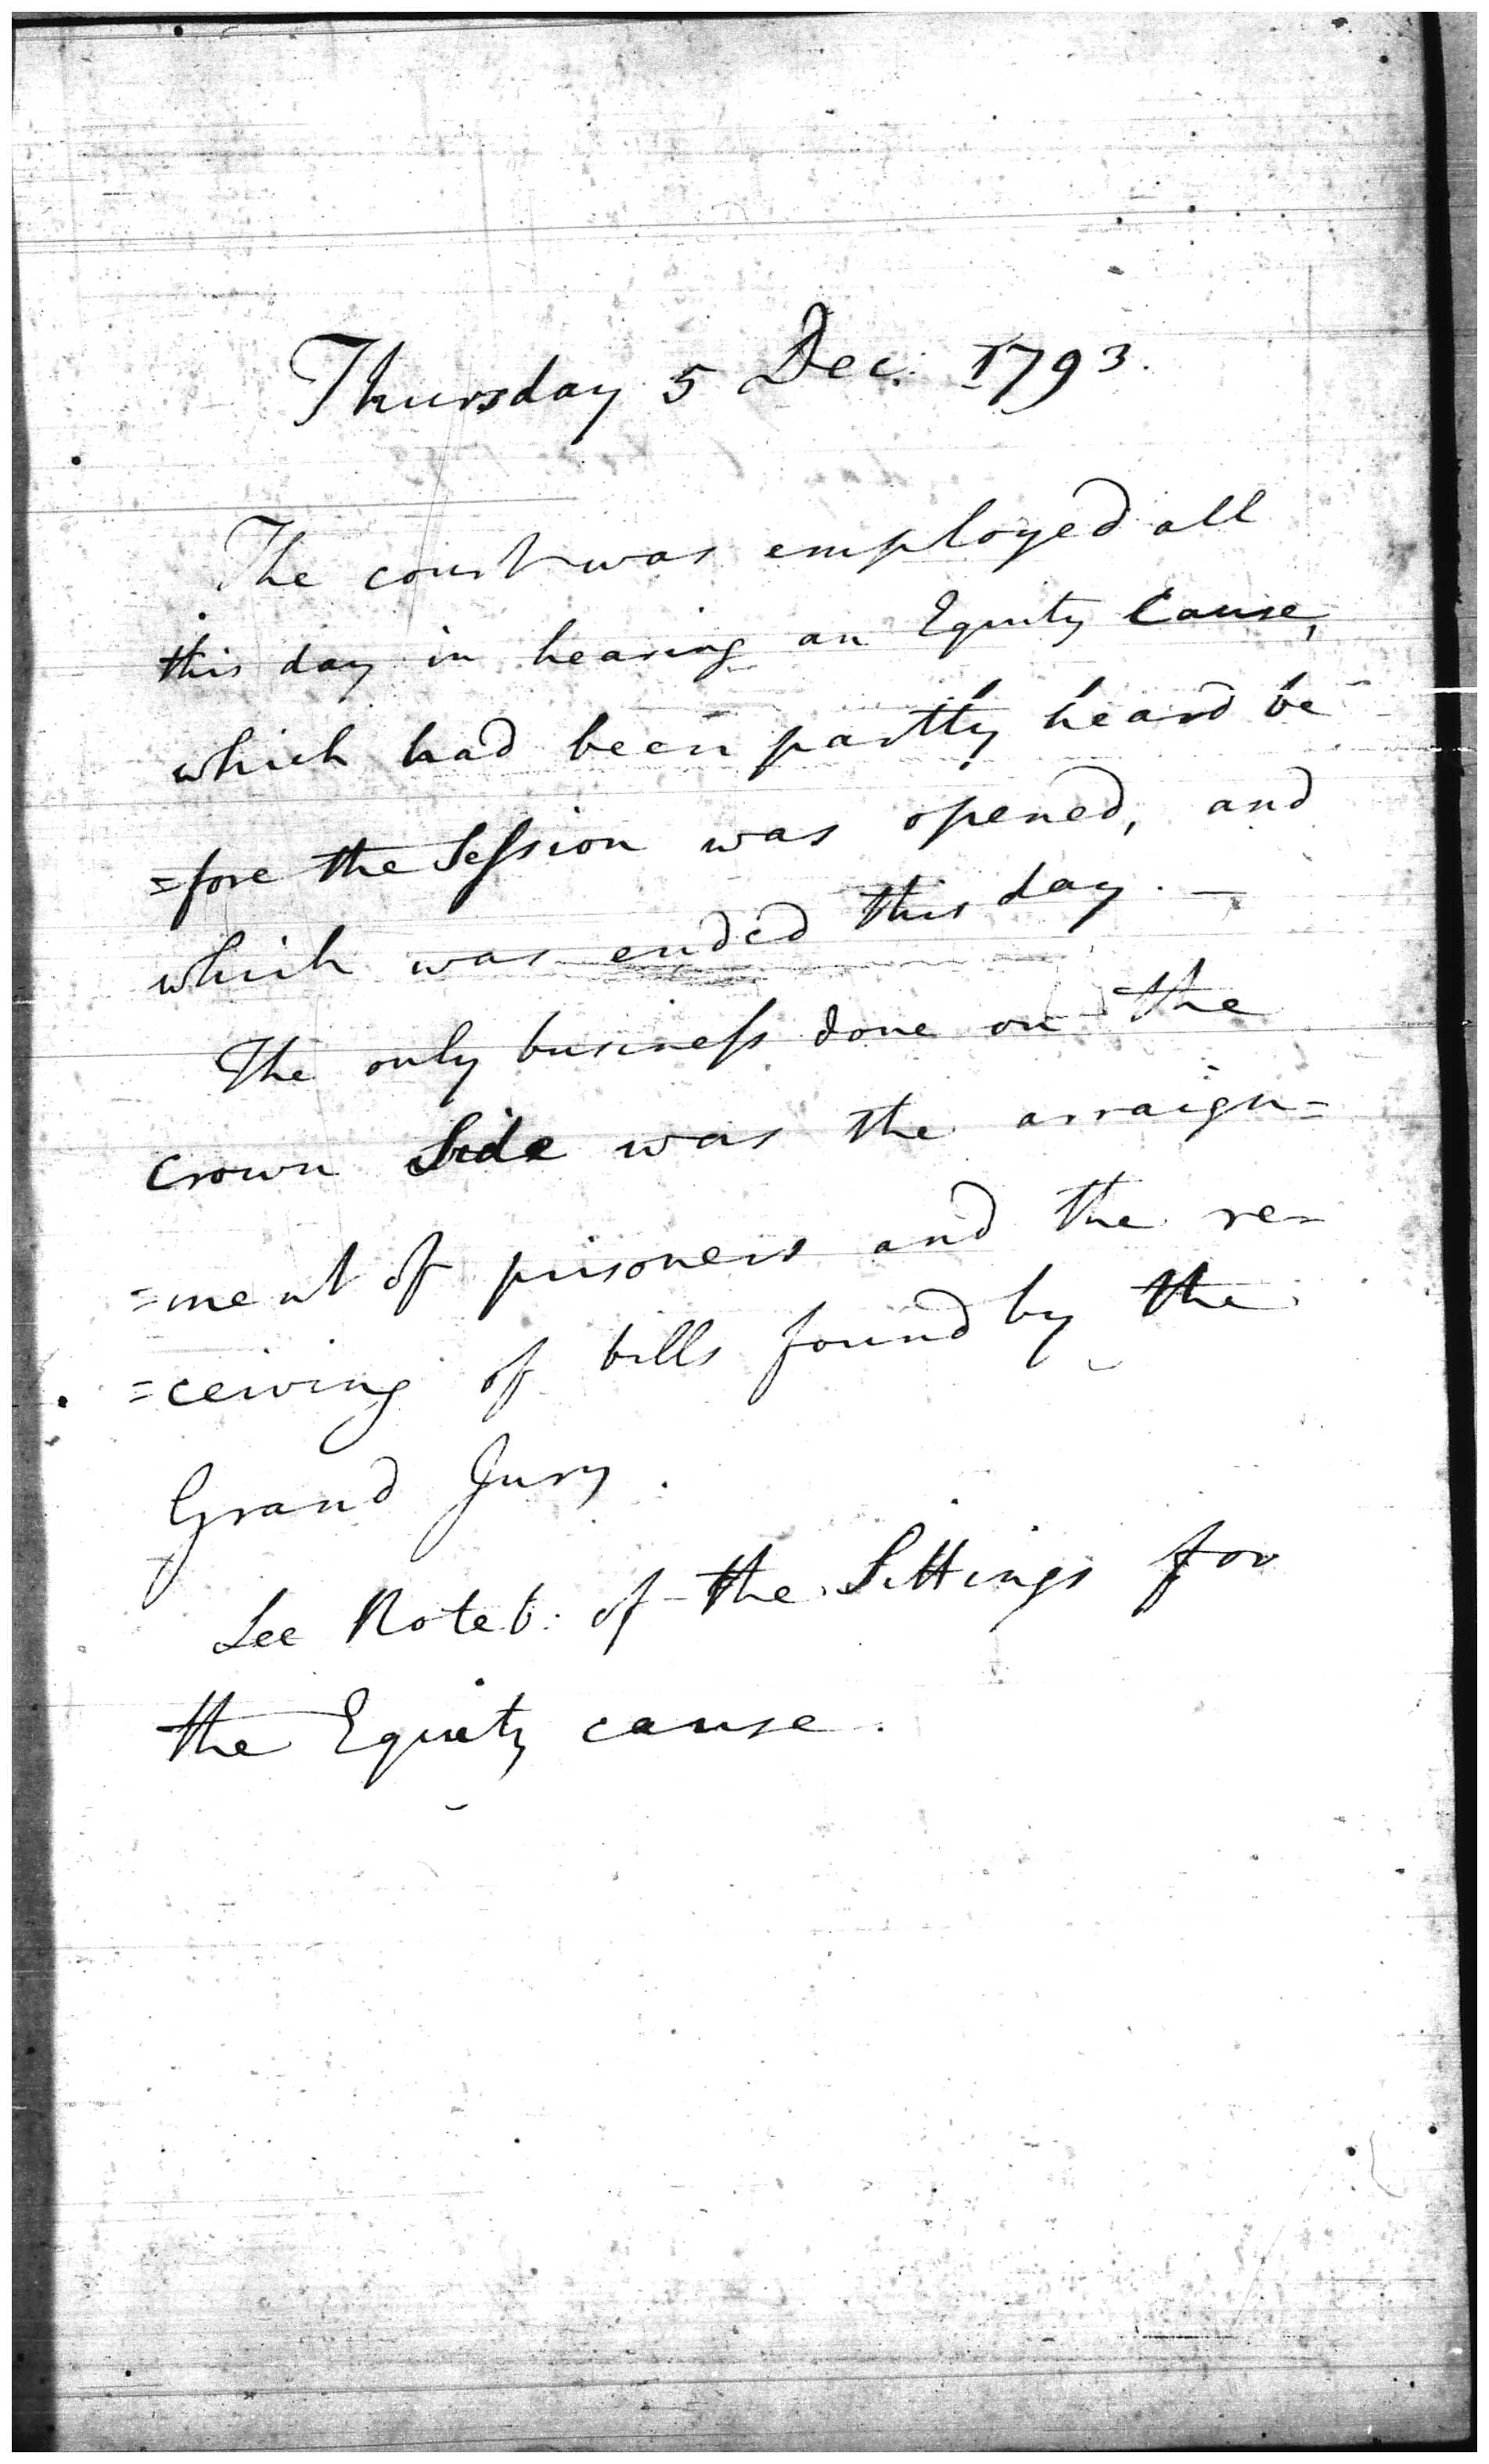 Thursday 5 Dec: 1793.
The court was employed all
this day in hearing an Equity Cause,
which had been partly heard be-
=fore the Session was opened, and
which was ended this day. —
The only business done on the
crown Side was the arraign=
=ment of prisoners and the re=
=ceiving of bills found by the
Grand Jury.
See Noteb: of the Sittings for
the Equity cause.